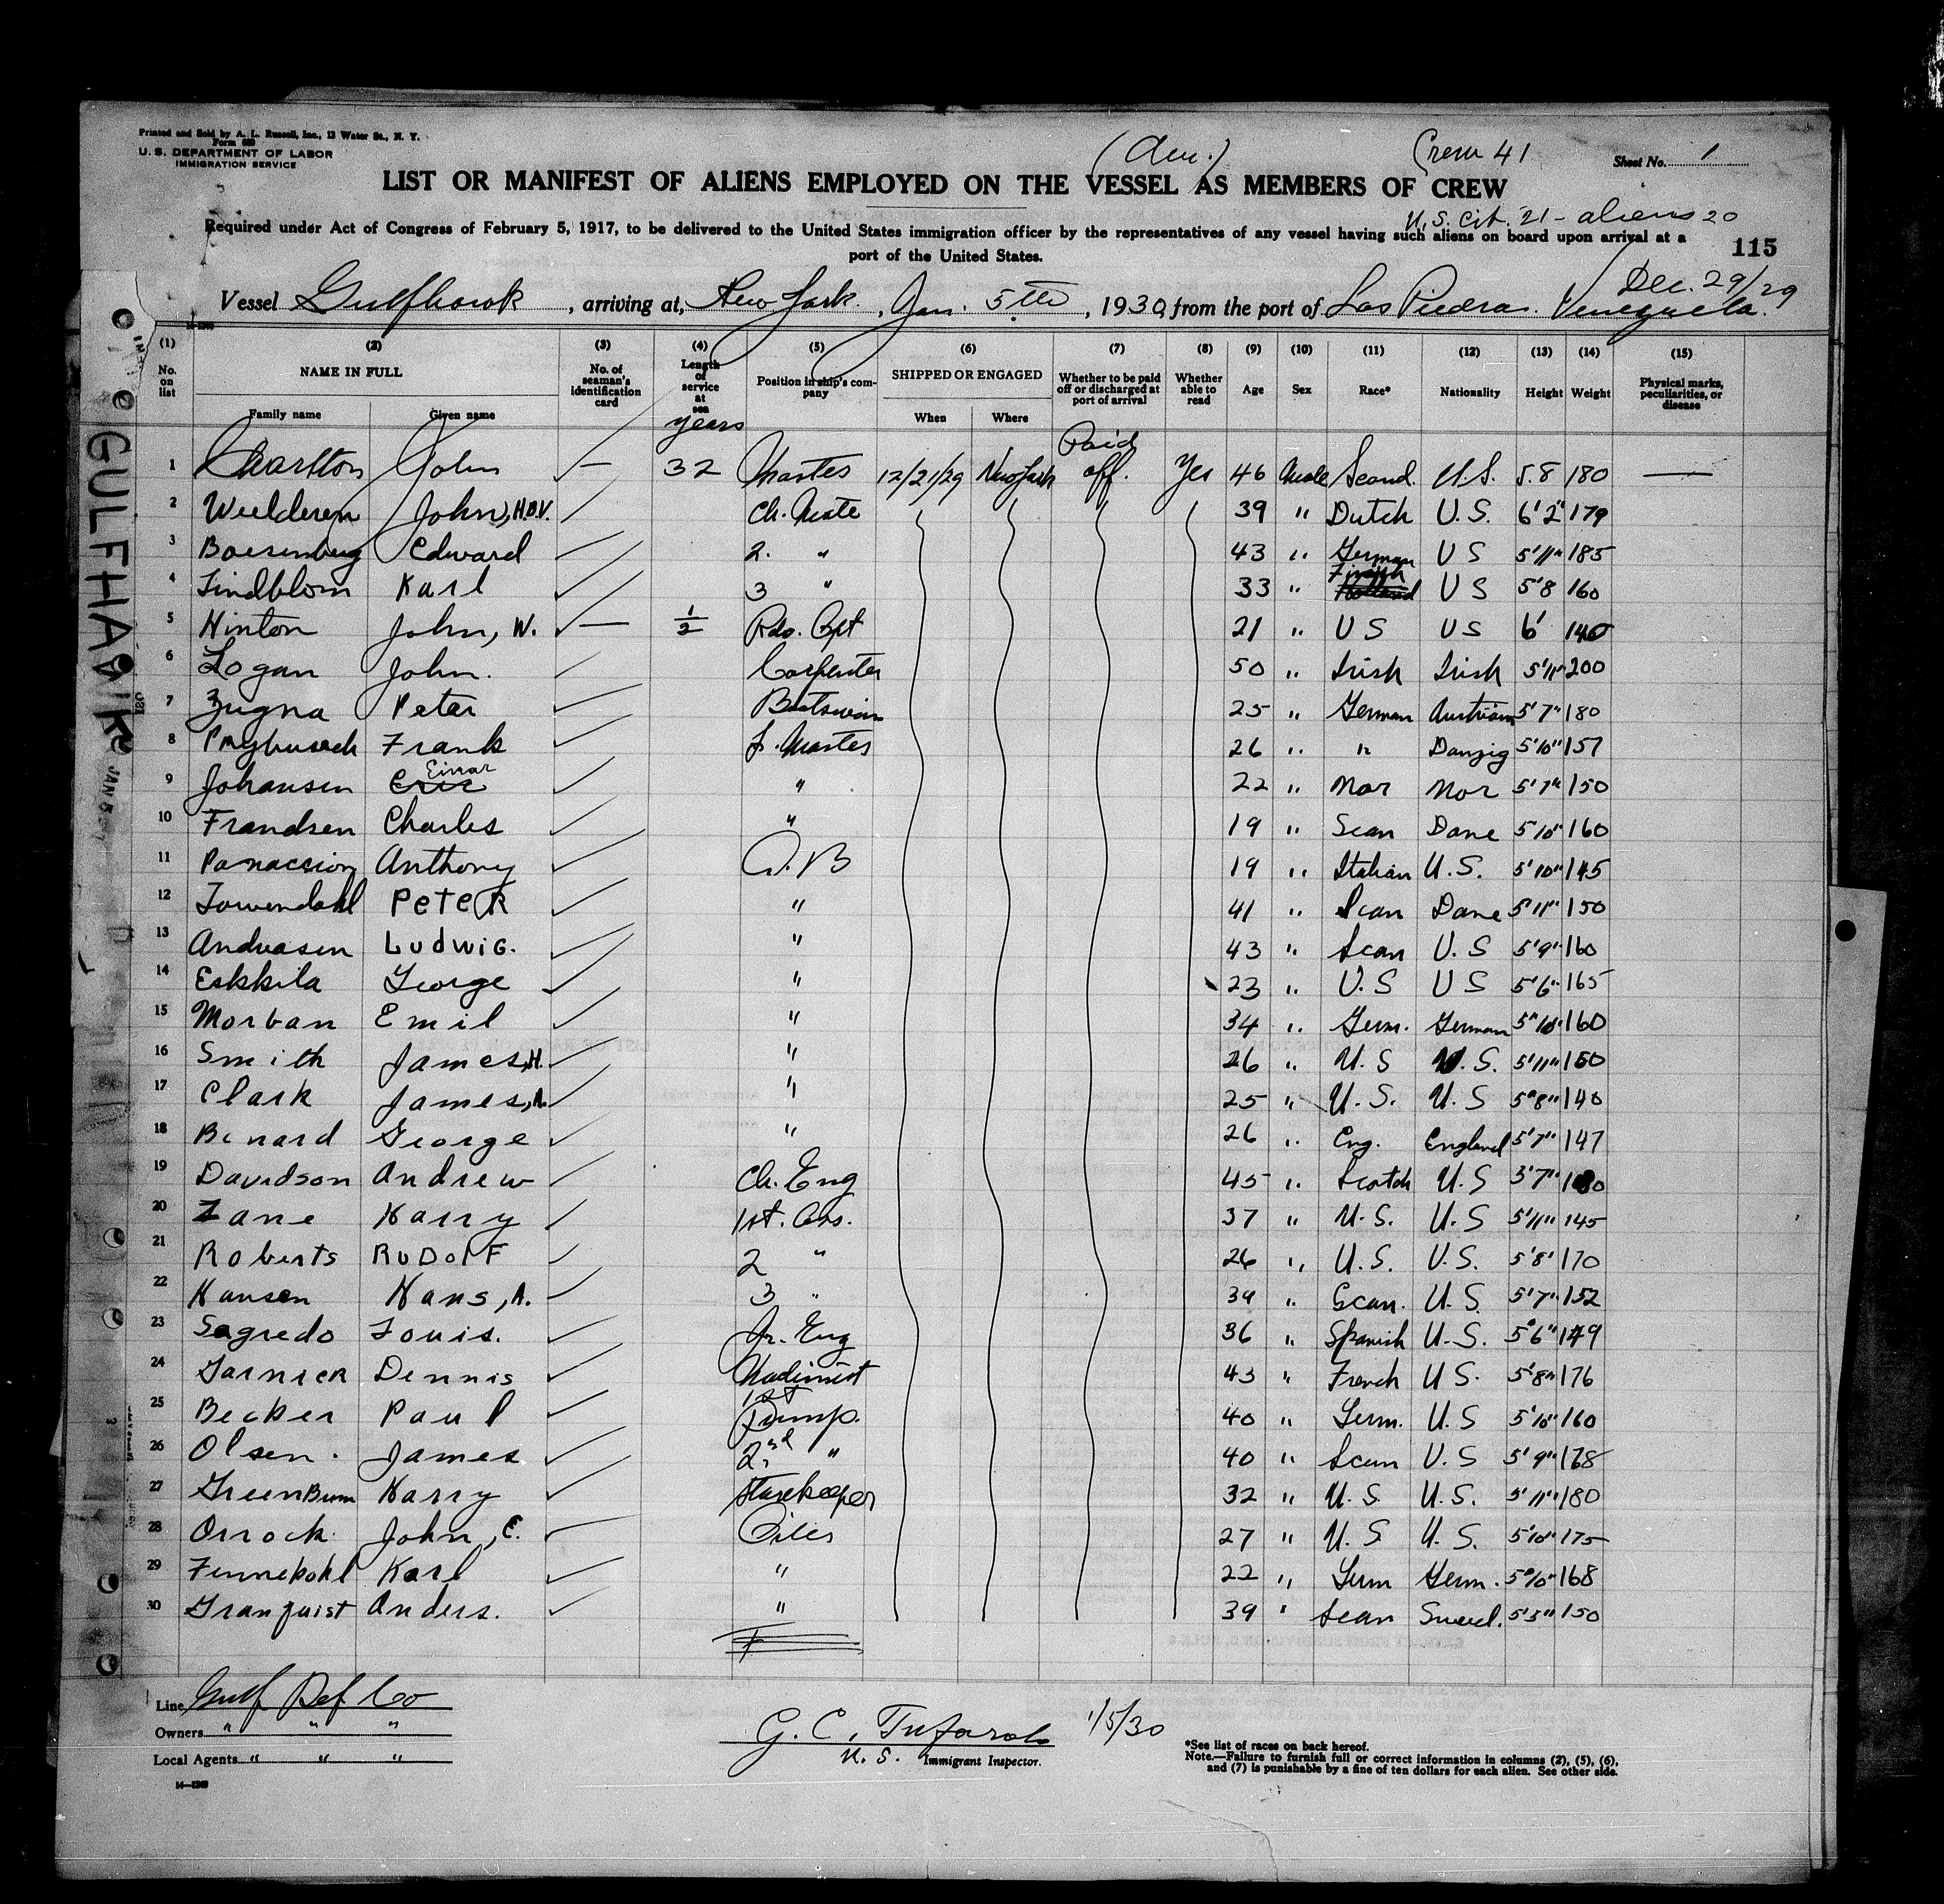 Printed and Sold by A. L. Russell, Inc., 13 Water St., N. Y.
Form 680
U. S. DEPARTMENT OF LABOR
IMMIGRATION SERVICE
Crew 41
Sheet No. 1
LIST OR MANIFEST OF ALIENS EMPLOYED ON THE VESSEL AS MEMBERS OF CREW
U.S. Cit. 21 - aliens 20
Required under Act of Congress of February 5, 1917, to be delivered to the United States immigration officer by the representatives of any vessel having such aliens on board upon arrival at a
port of the United States.
115
Dec. 29/29
Vessel Gulfhawk, arriving at, New York, Jan. 5th, 1930, from the port of Las Piedras. Venezuela.
(1) (2) (3) (4) (5) (6) (7) (8) (9) (10) (11) (12) (13) (14) (15)
No. on list NAME IN FULL Family name Given name No. of seaman's identification card Length of service at sea years Position in ship's company SHIPPED OR ENGAGED When Where Whether to be paid off or discharged at port of arrival Whether able to read Age Sex Race* Nationality Height Weight Physical marks, peculiarities, or disease
1 Charlton John — 32 Master 12/21/29 New York Paid off. Yes 46 Male Scand. U.S. 5.8 180 —
2 Weelderen John, H.D.V. Ch. Mate 39 " Dutch U.S. 6'2" 179
3 Boesenberg Edward 2. " 43 " German US 5'11" 185
4 Lindblom Karl 3 " 33 " Finish US 5'8 160
5 Hinton John, W. — 1/2 Rdo. Opt 21 " US US 6' 140
6 Logan John. Carpenter 50 " Irish Irish 5'11" 200
7 Zugna Peter Boatswain 25 " German Austrian 5'7" 180
8 Frank 26 " " Danzig 5'10" 157
9 Johansen Eric Einar " 22 " Nor Nor 5'7" 150
10 Frandsen Charles " 19 " Scan Dane 5'10" 160
11 Panaccion Anthony A.B 19 " Italian U.S. 5'10" 145
12 Peter " 41 " Scan Dane 5'11" 150
13 Andreasen Ludwig. " 43 " Scan U.S 5'9" 160
14 Eskkila George " 23 " U.S US 5'6" 165
15 Morban Emil " 34 " Germ. German 5'10" 160
16 Smith James, H. " 26 " U.S U.S. 5'11" 150
17 Clark James, A. " 25 " U.S. U.S 5'8" 140
18 Benard George " 26 " Eng. England 5'7" 147
19 Davidson Andrew Ch. Eng 45 " Scotch U.S 5'7"
20 Zane Harry 1st. Ass. 37 " U.S. U.S 5'11" 145
21 Roberts RUDOLF 2 " 26 " U.S. U.S. 5'8' 170
22 Hansen Hans, A. 3 " 39 " Scan. U.S. 5'7" 152
23 Sagredo Louis. Jr. Eng 36 " Spanish U.S. 5'6" 149
24 Garnier Dennis Machinist 43 " French U S. 5'8" 176
25 Becker Paul 1st Pump. 40 " Germ. U.S 5'10" 160
26 Olsen. James 2nd " 40 " Scan U.S 5'9" 168
27 Harry Storekeeper 32 " U.S. U.S. 5'11" 180
28 Orrock John, E. Oiler 27 " U.S U.S. 5'10" 175
29 Finnekohl Karl " 22 " Germ Germ. 5'10" 168
30 Granquist Anders. " 39 " Scan Swed. 5'5" 150
GULFHAWK
JAN 5
Line Gulf Ref Co
Owners " " "
Local Agents " " "
14—1240
G. C. 1/5/30
U. S. Immigrant Inspector.
*See list of races on back hereof.
Note.—Failure to furnish full or correct information in columns (2), (5), (6),
and (7) is punishable by a fine of ten dollars for each alien. See other side.